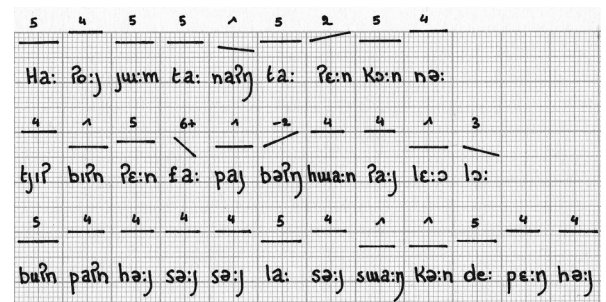 5 4 5 5 1 5 2 5 4
Ha: ʔo:ȷ ȷɯ:m ta: naʔŋ ta: ʔɛ:n Kɔ:n nə:
4 1 5 6+ 1 -2 4 4 1 3
tȷıʔ bıʔn ʔɛ:n paȷ bəʔŋ hɯa:n ʔa:ȷ lɛ:ɔ lɔ:
5 4 4 4 4 5 4 1 1 5 4 4
buʔn paʔn hə:ȷ sə:ȷ sə:ȷ la: sə:ȷ sɯa:ŋ Kə:n de: pɛ:ŋ hə:ȷ